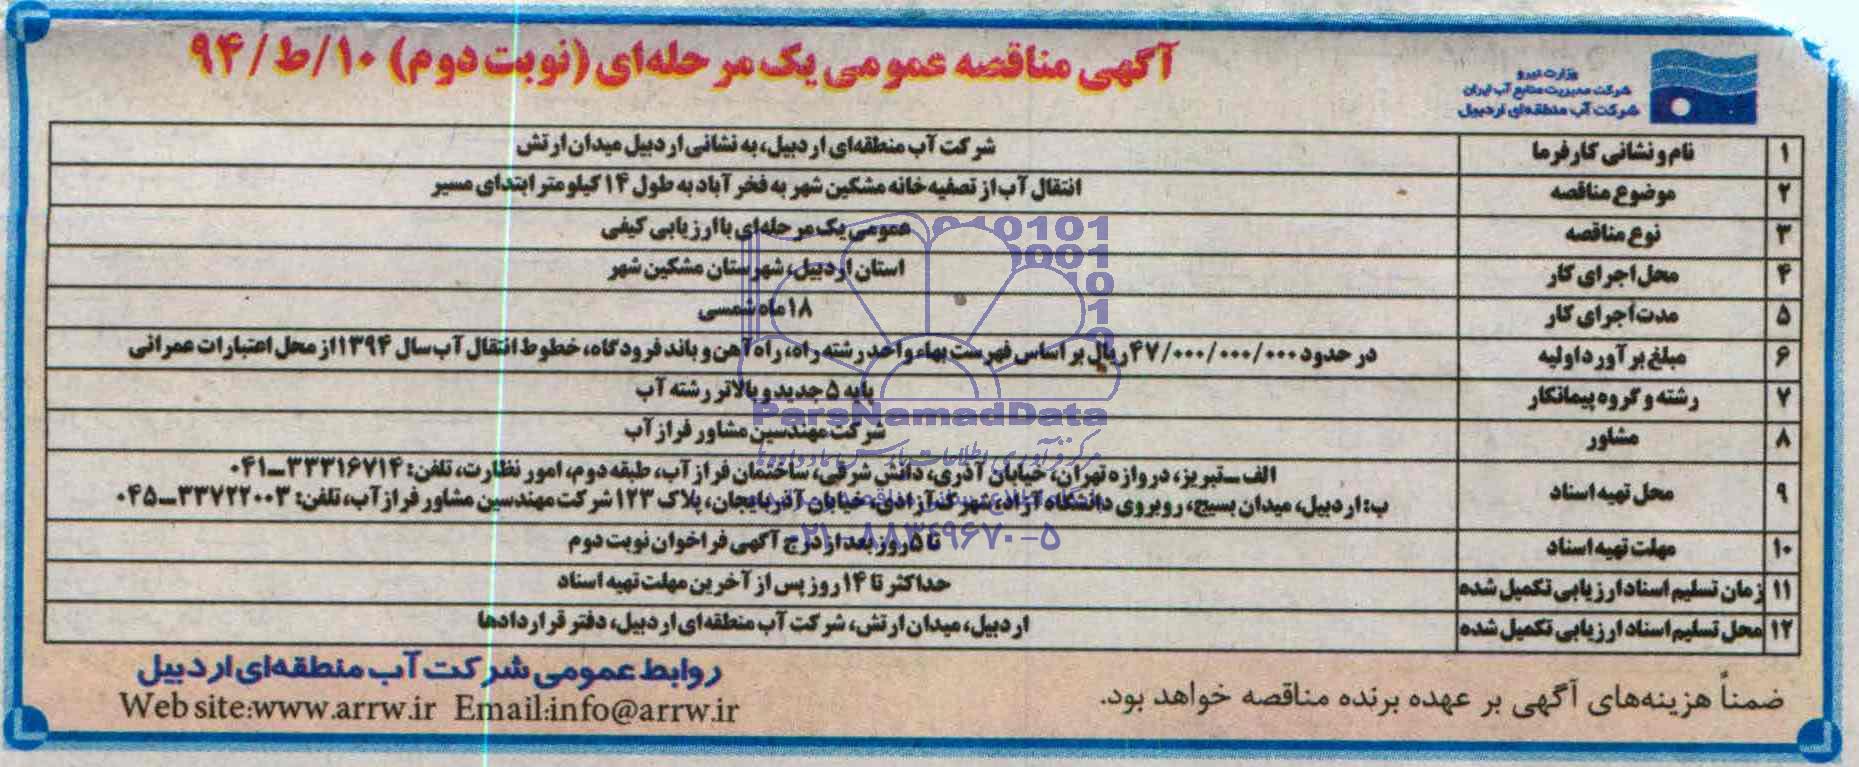 آگهی مناقصه عمومی یک مرحله‌ای (نوبت دوم) ۱۰/ط/۹۴
وزارت نیرو
شرکت مدیریت منابع آب ایران
شرکت آب منطقه‌ای اردبیل
۱ نام و نشانی کارفرما شرکت آب منطقه‌ای اردبیل، به نشانی اردبیل میدان ارتش
۲ موضوع مناقصه انتقال آب از تصفیه خانه مشکین شهر به فخرآباد به طول ۱۴ کیلومتر ابتدای مسیر
۳ نوع مناقصه عمومی یک مرحله‌ای با ارزیابی کیفی
۴ محل اجرای کار استان اردبیل، شهرستان مشکین شهر
۵ مدت اجرای کار ۱۸ ماه شمسی
۶ مبلغ برآورد اولیه در حدود ۴۷/۰۰۰/۰۰۰/۰۰۰ ریال بر اساس فهرست بهاء واحد رشته راه، راه آهن و باند فرودگاه، خطوط انتقال آب سال ۱۳۹۴ از محل اعتبارات عمرانی
۷ رشته و گروه پیمانکار پایه ۵ جدید و بالاتر رشته آب
۸ مشاور شرکت مهندسین مشاور فرازآب
۹ محل تهیه اسناد الف ـ تبریز، دروازه تهران، خیابان آذری، دانش شرقی، ساختمان فرازآب، طبقه دوم، امور نظارت، تلفن: ۳۳۳۱۶۷۱۴ـ۰۴۱
ب: اردبیل، میدان بسیج، روبروی دانشگاه آزاد، شهرک آزادی، خیابان آذربایجان، پلاک ۱۲۳ شرکت مهندسین مشاور فرازآب، تلفن: ۳۳۷۲۲۰۰۳ـ۰۴۵
۱۰ مهلت تهیه اسناد تا ۵ روز بعد از درج آگهی فراخوان نوبت دوم
۱۱ زمان تسلیم اسناد ارزیابی تکمیل شده حداکثر تا ۱۴ روز پس از آخرین مهلت تهیه اسناد
۱۲ محل تسلیم اسناد ارزیابی تکمیل شده اردبیل، میدان ارتش، شرکت آب منطقه‌ای اردبیل، دفتر قراردادها
ضمناً هزینه‌های آگهی بر عهده برنده مناقصه خواهد بود.
روابط عمومی شرکت آب منطقه‌ای اردبیل
Web site:www.arrw.ir Email:info@arrw.ir
ParsNamadData
۰۲۱-۸۸۳۴۹۶۷۰-۵